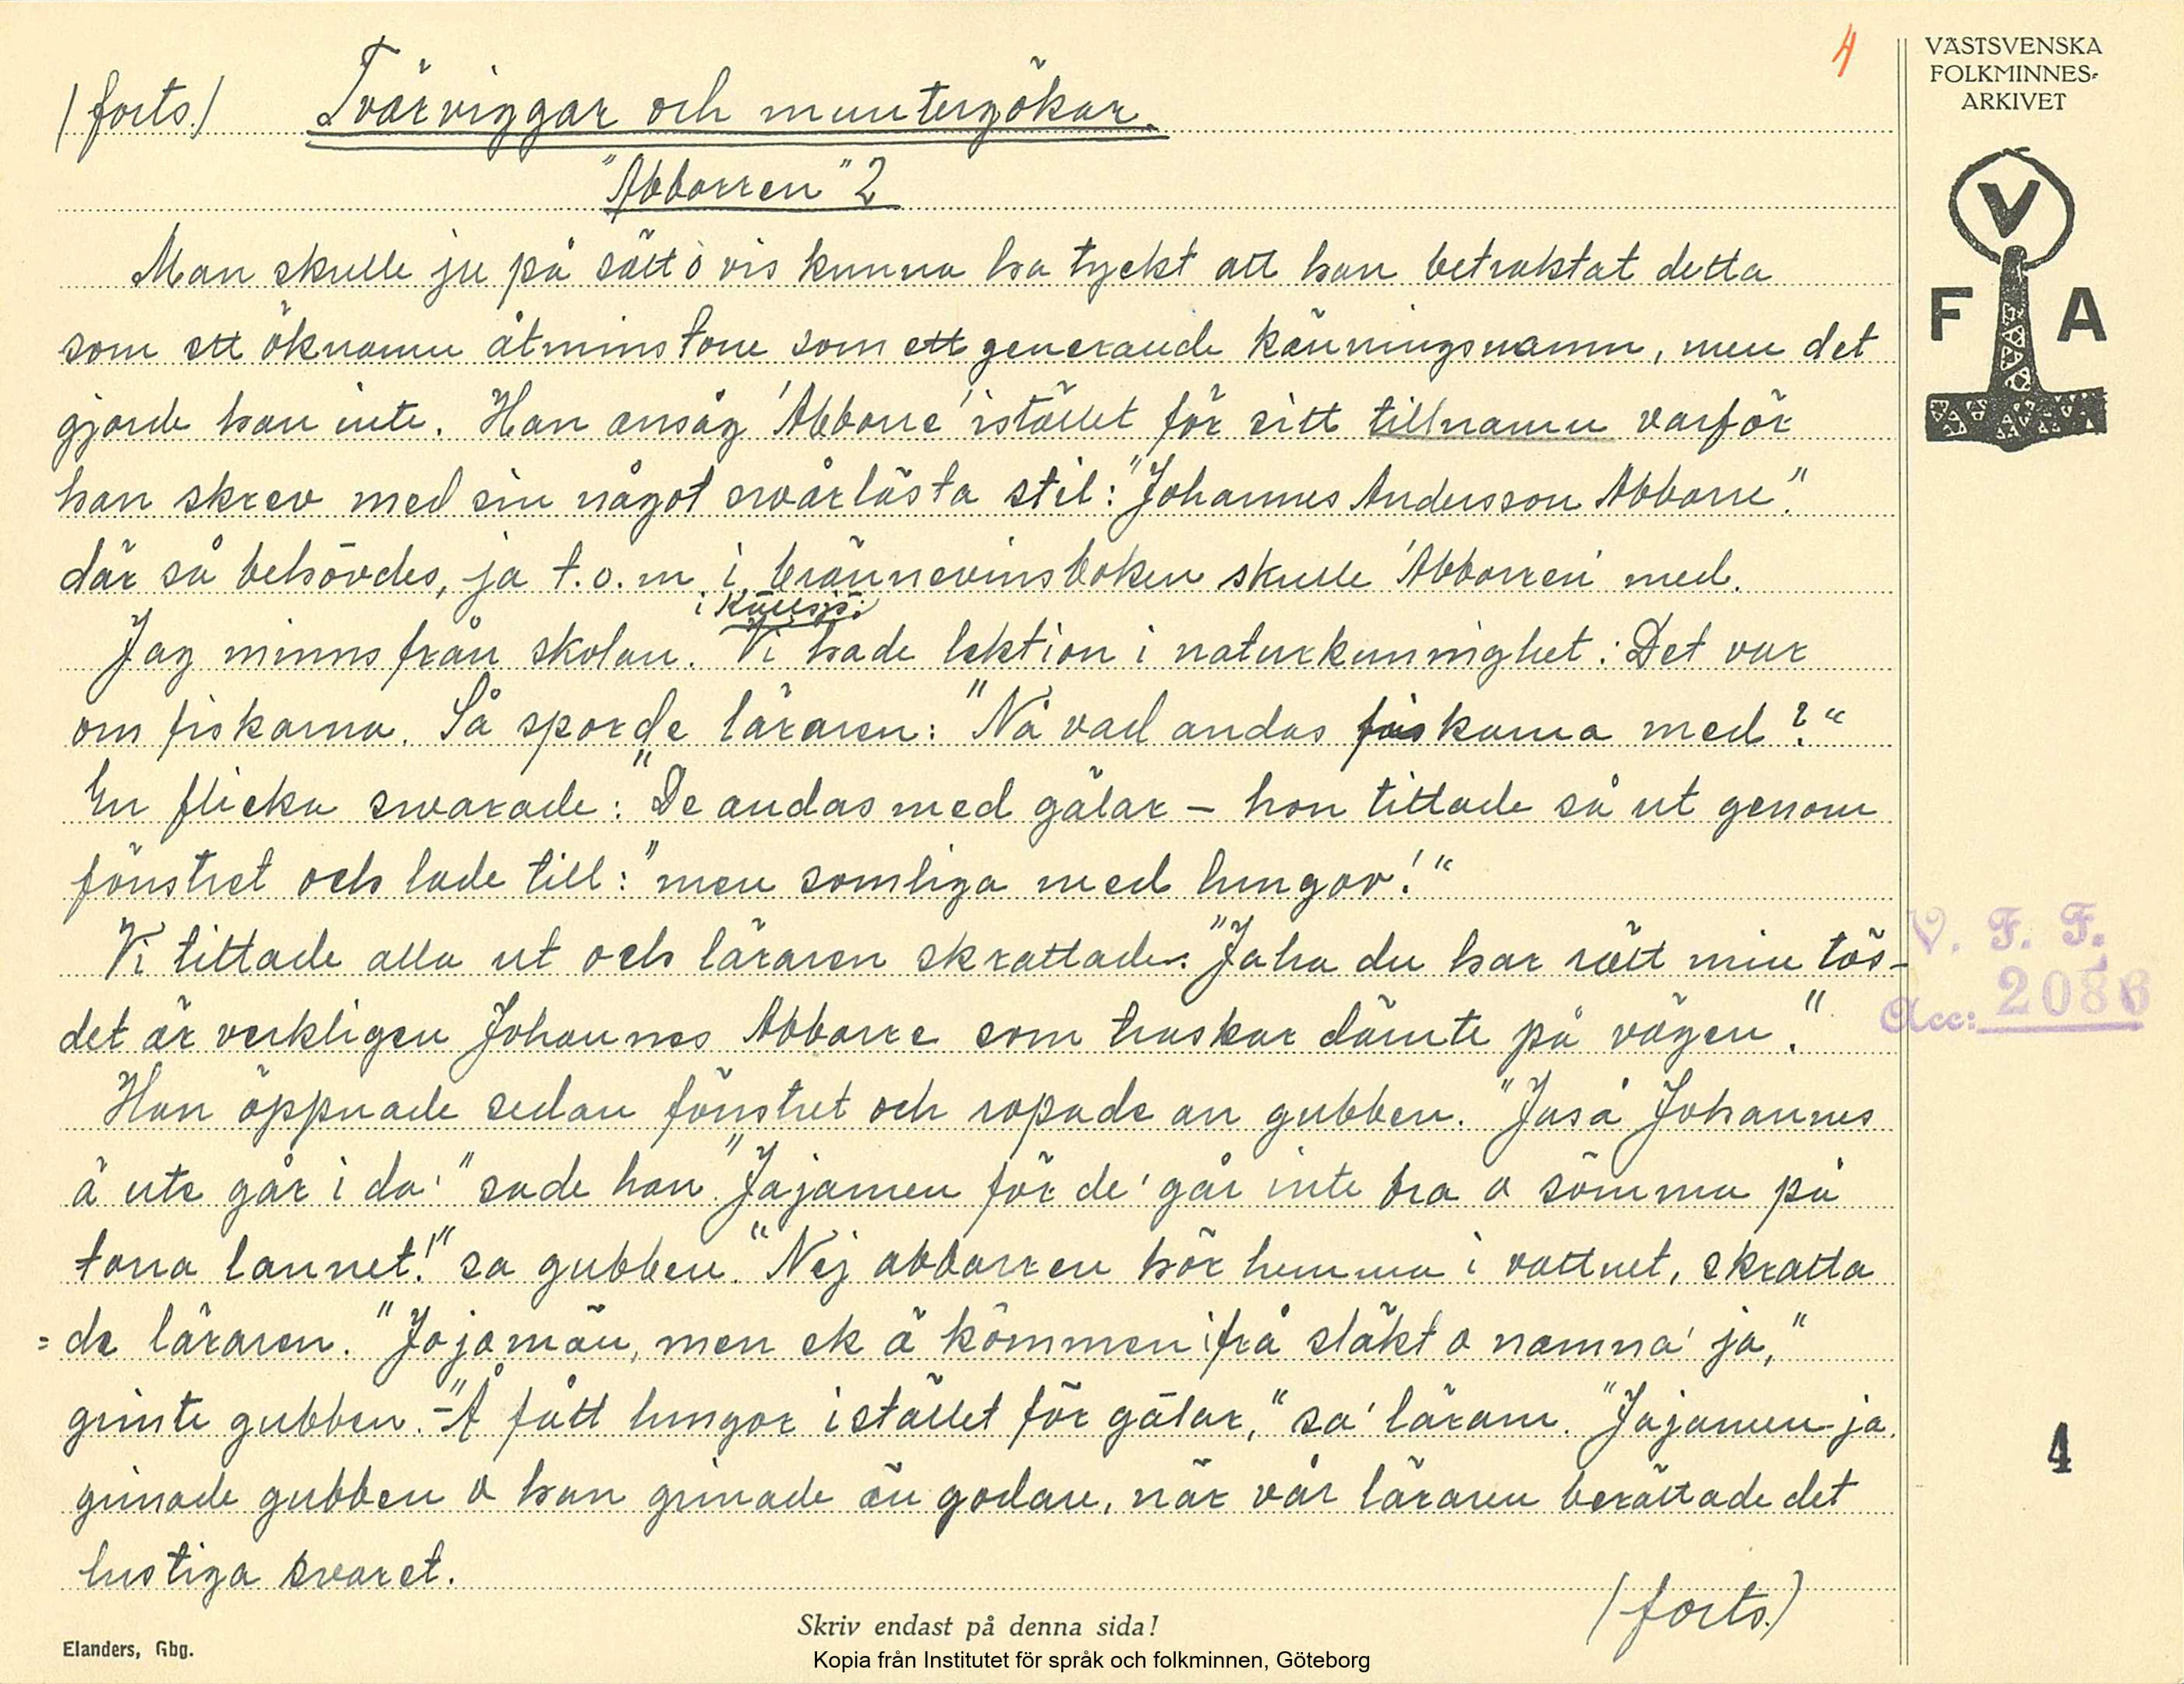 4
VÄSTSVENSKA
FOLKMINNES-
ARKIVET
(forts.) Tvärviggar och muntergökar.
"Abborren" 2
Man skulle ju på sätt o vis kunna ha tyckt att han betraktat detta
som ett öknamn åtminstone som ett generande känningsnamn, men det
gjorde han inte. Han ansåg 'Abborre' istället för sitt tillnamn varför
han skrev med sin något svårlästa stil: "Johannes Andersson Abborre."
där så behövdes, ja t.o.m i brännevinsboken skulle 'Abborren' med.
i Källsjö:
Jag minns från skolan. Vi hade lektion i naturkunnighet: Det var
om fiskarna. Så sporde läraren: "Nå vad andas fiskarna med?"
En flicka svarade: "De andas med gälar – hon tittade så ut genom
fönstret och lade till: "men somliga med lungor!"
Vi tittade alla ut och läraren skrattade: "Jaha du har rätt min tös-
det är verkligen Johannes Abborre som traskar därute på vägen."
Han öppnade sedan fönstret och ropade an gubben. "Jaså Johannes
ä ute går i da'" sade han. "Jajamen för de' går inte bra o sömma på
torra lannet!" sa gubben. "Nej abborren hör hemma i vattnet, skratta
=de läraren. "Jojomän, men ek ä kömmen ifrå släkt o namna' ja,"
grinte gubben. –"Å fått lungor istället för gälar," sa' läraren. "Jajamen ja.
grinade gubben o han grinade än godare, när vår läraren berättade det
lustiga svaret.
(forts.)
V
F A
V. F. F.
Acc: 2086
4
Skriv endast på denna sida!
Elanders, Gbg.
Kopia från Institutet för språk och folkminnen, Göteborg